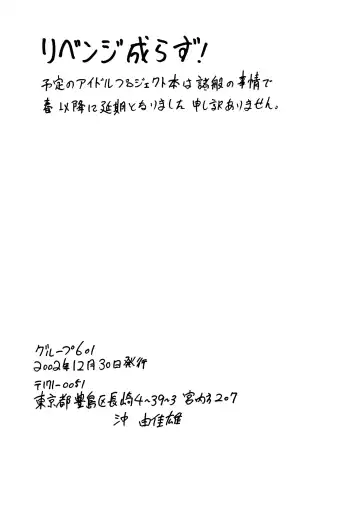 リベンジ成らず！
予定のアイドルプロジェクト本は諸般の事情で
春以降に延期となりました 申し訳ありません。
グループ601
2002年12月30日発行
〒171-0051
東京都豊島区長崎4-39-3 宮内方207
沖 由佳雄